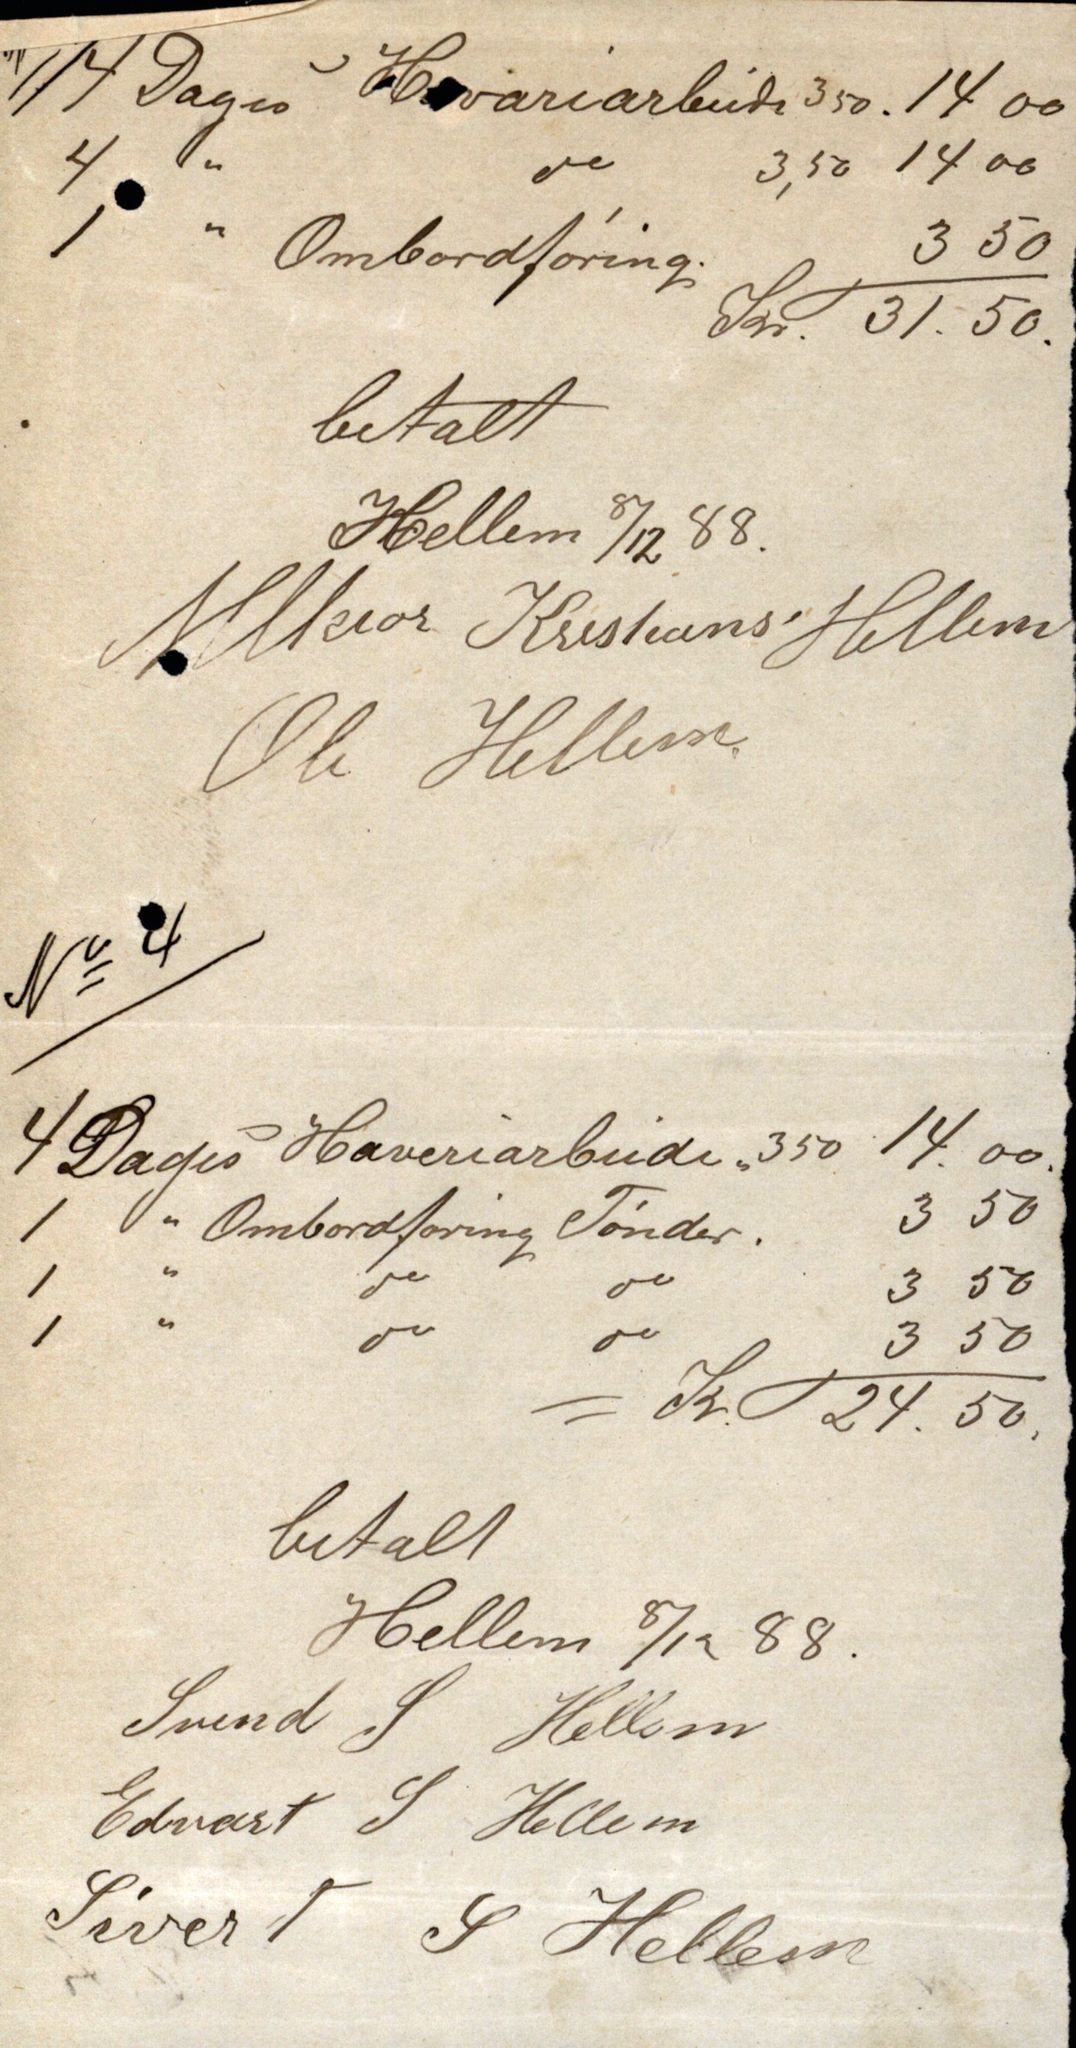 4 Dages Havariarbeide 3 50. 14 00
4 " do 3,50 14 00
1 " Ombordføring. 3 50
Kr. 31. 50.
betalt
Hellem 8/12 88.
Melkior Kristians Hellem
Ole Hellem.
No 4
4 Dages Haveriarbeide " 3 50 14. 00.
1 " Ombordføring Tønder. 3 50
1 " do do 3 50
1 " do do 3 50
= Kr. 24. 50.
betalt
Hellem 8/12 88.
Svend S Hellem
Edvart S Hellem
Sivert S Hellem